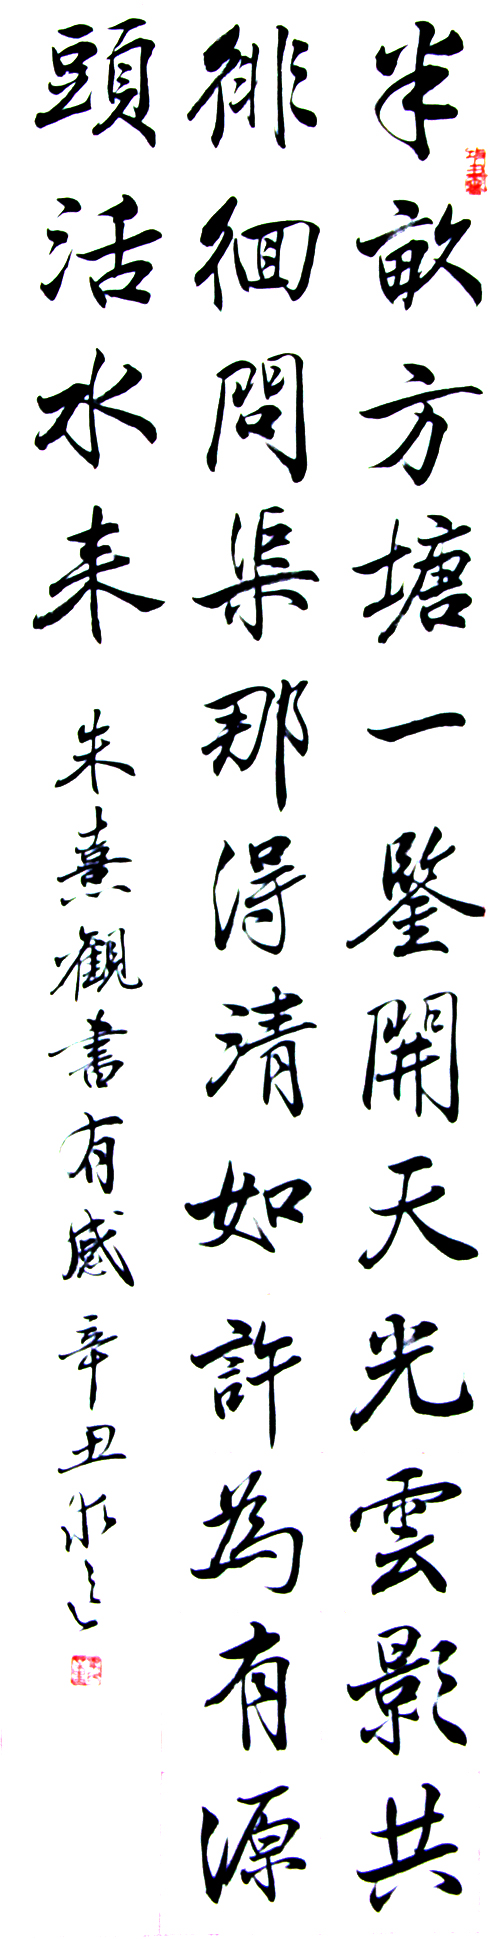 半畝方塘一鑒開天光雲影共
徘徊問渠那得清如許為有源
頭活水来
朱熹觀書有感辛丑